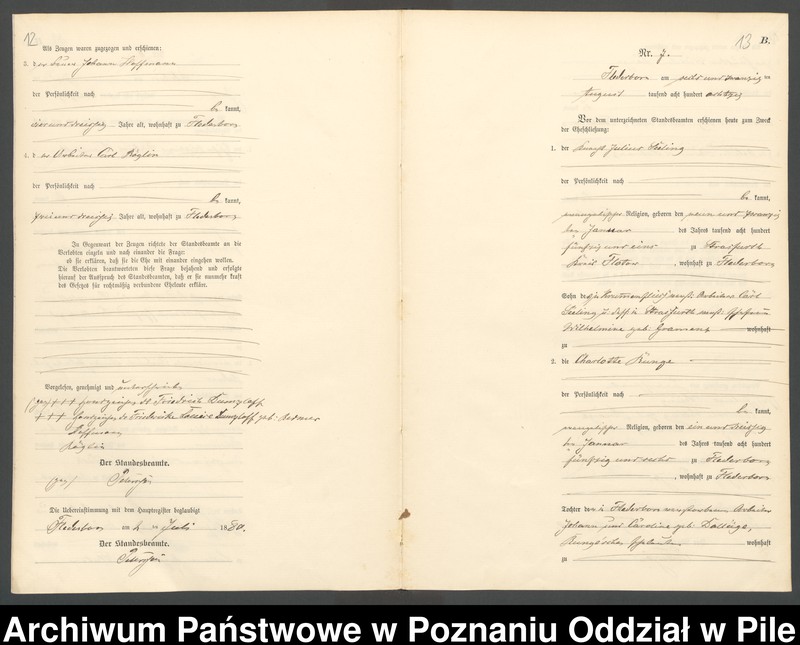 12
Als Zeugen waren zugezogen und erschienen:
3. der Johann Hoffmann
der Persönlichkeit nach
be kannt,
vierunddreißig Jahre alt, wohnhaft zu Flederborn
4. der Arbeiter Carl Röglin
der Persönlichkeit nach
be kannt,
zweiunddreißig Jahre alt, wohnhaft zu Flederborn
In Gegenwart der Zeugen richtete der Standesbeamte an die
Verlobten einzeln und nach einander die Frage:
ob sie erklären, daß sie die Ehe mit einander eingehen wollen.
Die Verlobten beantworteten diese Frage bejahend und erfolgte
hierauf der Ausspruch des Standesbeamten, daß er sie nunmehr kraft
des Gesetzes für rechtmäßig verbundene Eheleute erkläre.
Vorgelesen, genehmigt und unterschrieben
(gez) +++ Handzeichen des Friedrich
+++ Handzeichen der Friederike geb.
Hoffmann
Röglin
Der Standesbeamte.
(gez)
Die Uebereinstimmung mit dem Hauptregister beglaubigt
Flederborn am 2 ten Juli 1880.
Der Standesbeamte.
13 B.
Nr. 7.
Flederborn am sechs und zwanzig ten
August tausend acht hundert achtzig
Vor dem unterzeichneten Standesbeamten erschienen heute zum Zweck
der Eheschließung:
1. der Knecht Julius Seeling
der Persönlichkeit nach
be kannt,
evangelischer Religion, geboren den neun und zwanzig
ten Januar des Jahres tausend acht hundert
fünfzig und eins zu
Kreis Flatow, wohnhaft zu Flederborn
Sohn des Arbeiters Carl
Seeling, u. dess. in
Wilhelmine geb. wohnhaft
zu
2. die Charlotte Kunge
der Persönlichkeit nach
be kannt,
evangelischer Religion, geboren den ein und dreißig
ten Januar des Jahres tausend acht hundert
fünfzig und sechs zu Flederborn
, wohnhaft zu Flederborn
Tochter der in Flederborn verstorbenen Arbeiter
Johann und Caroline geb.
Eheleute wohnhaft
zu
Archiwum Państwowe w Poznaniu Oddział w Pile